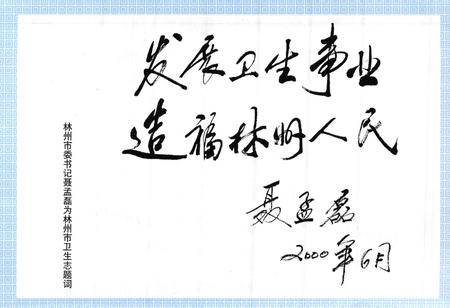 发展卫生事业
造福林州人民
聂孟磊
2000年6月
林州市委书记聂孟磊为林州市卫生志题词